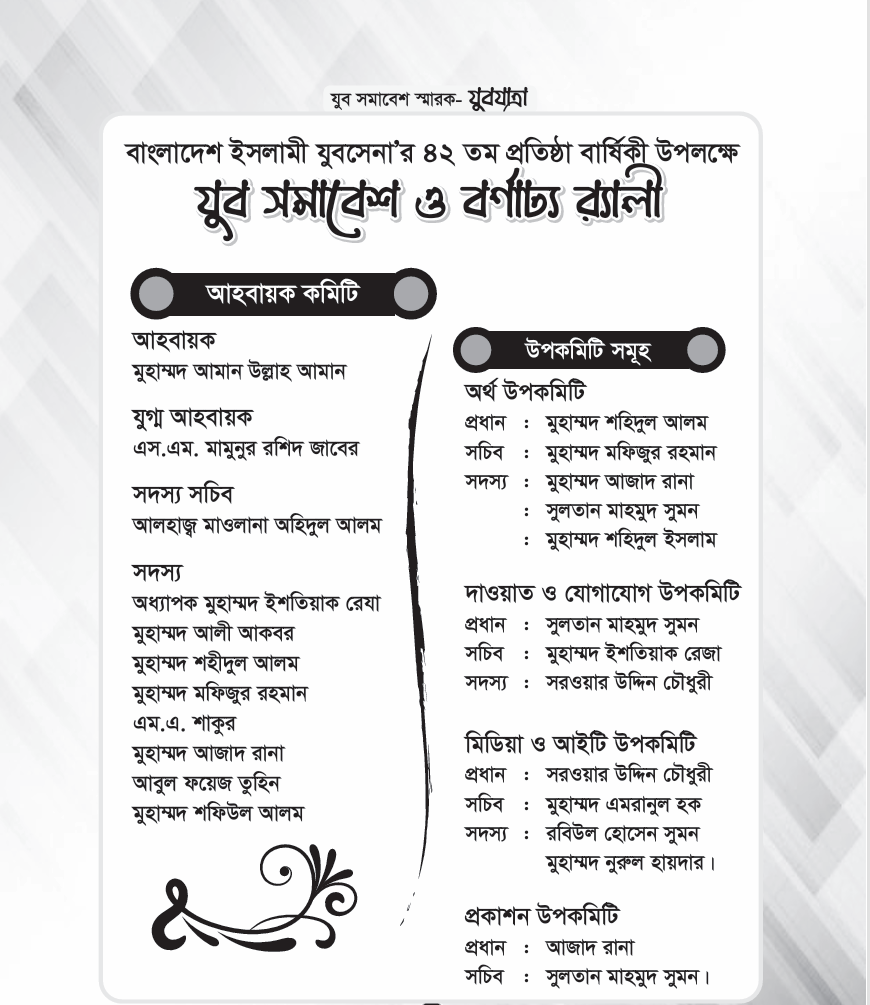 যুব সমাবেশ স্মারক- যুবযাত্রা
বাংলাদেশ ইসলামী যুবসেনা'র ৪২ তম প্রতিষ্ঠা বার্ষিকী উপলক্ষে
যুব সমাবেশ ও বর্ণাঢ্য র‍্যালী
আহবায়ক কমিটি
আহবায়ক
মুহাম্মদ আমান উল্লাহ আমান
যুগ্ম আহবায়ক
এস.এম. মামুনুর রশিদ জাবের
সদস্য সচিব
আলহাজ্ব মাওলানা অহিদুল আলম
সদস্য
অধ্যাপক মুহাম্মদ ইশতিয়াক রেযা
মুহাম্মদ আলী আকবর
মুহাম্মদ শহীদুল আলম
মুহাম্মদ মফিজুর রহমান
এম.এ. শাকুর
মুহাম্মদ আজাদ রানা
আবুল ফয়েজ তুহিন
মুহাম্মদ শফিউল আলম
উপকমিটি সমূহ
অর্থ উপকমিটি
প্রধান : মুহাম্মদ শহিদুল আলম
সচিব : মুহাম্মদ মফিজুর রহমান
সদস্য : মুহাম্মদ আজাদ রানা
: সুলতান মাহমুদ সুমন
: মুহাম্মদ শহিদুল ইসলাম
দাওয়াত ও যোগাযোগ উপকমিটি
প্রধান : সুলতান মাহমুদ সুমন
সচিব : মুহাম্মদ ইশতিয়াক রেজা
সদস্য : সরওয়ার উদ্দিন চৌধুরী
মিডিয়া ও আইটি উপকমিটি
প্রধান : সরওয়ার উদ্দিন চৌধুরী
সচিব : মুহাম্মদ এমরানুল হক
সদস্য : রবিউল হোসেন সুমন
মুহাম্মদ নুরুল হায়দার।
প্রকাশন উপকমিটি
প্রধান : আজাদ রানা
সচিব : সুলতান মাহমুদ সুমন।